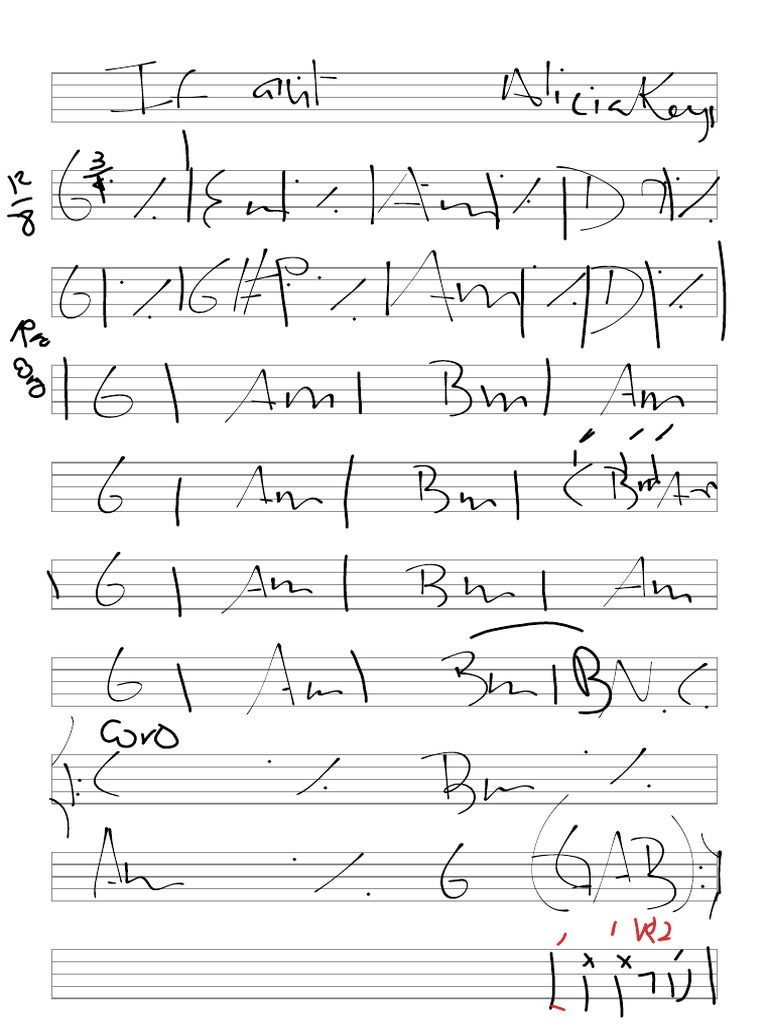 If aint Alicia Keys
12/8 G 3/4 ٪ | Em | ٪ | Am | ٪ | D 7 | ٪
G | ٪ | G#º | ٪ | Am | ٪ | D | ٪ |
Pre coro
| G | Am | Bm | Am
G | Am | Bm | C Bm Am
| G | Am | Bm | Am
G | Am | Bm | B N.C.
Coro
|: C ٪ Bm ٪
Am ٪ G (GAB) :|